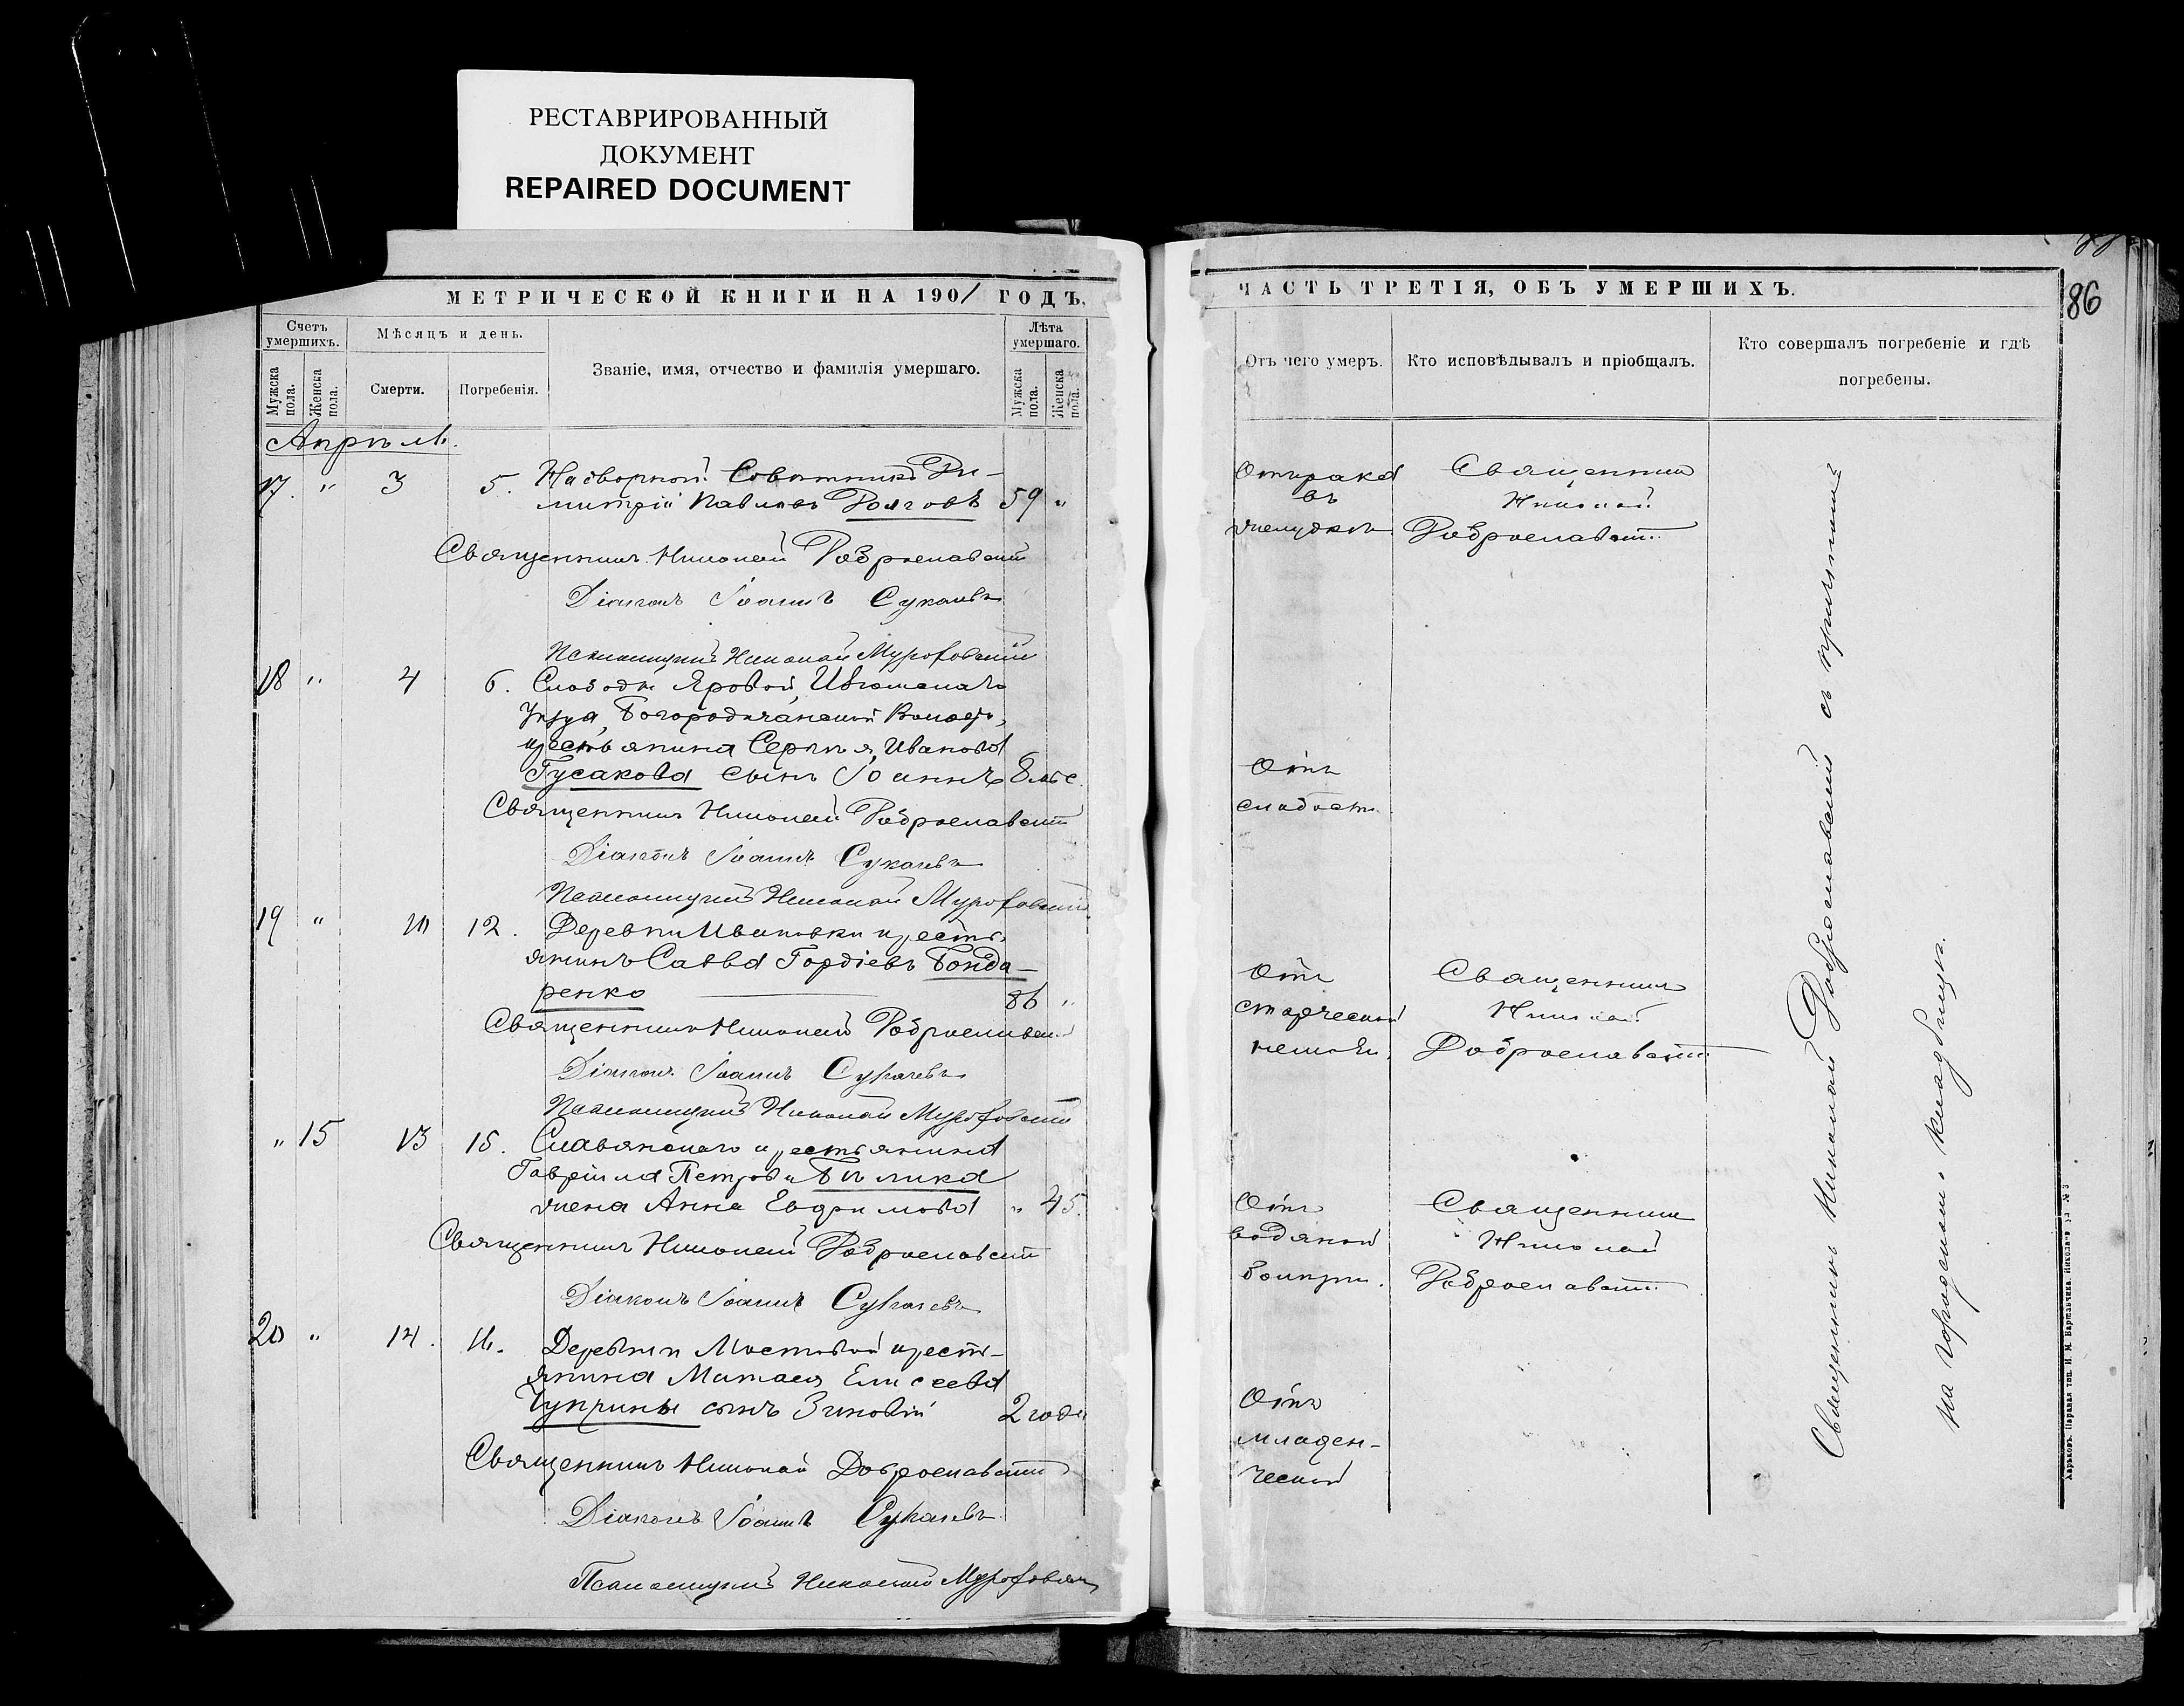 РЕСТАВРИРОВАННЫЙ
ДОКУМЕНТ
REPAIRED DOCUMENT
МЕТРИЧЕСКОЙ КНИГИ НА 1901 ГОДЪ,
Счетъ умершихъ.
Мѣсяцъ и день.
Званіе, имя, отчество и фамилія умершаго.
Лѣта умершаго.
Мужска пола.
Женска пола.
Смерти.
Погребенія.
Мужска пола.
Женска пола.
Апрѣль.
17. " 3 5. Надворной Совѣтникъ Ди-
митрій Павловъ Долговъ 59 "
Священникъ Николай Доброславскій
Діаконъ Іоаннъ Сукачевъ
Псаломщикъ Николай
18 " 4 6. Слободы Яровой, Изюмскаго
Уѣзда, Богородичанской Волости,
крестьянина Сергѣя Иванова
Гусакова сынъ Іоаннъ 8 мѣс.
Священникъ Николай Доброславскій
Діаконъ Іоаннъ Сукачевъ
Псаломщикъ Николай
19 " 10 12. Деревни Ивановки кресть-
янинъ Савва Гордіевъ Бонда-
ренко 86 "
Священникъ Николай Доброславскій
Діаконъ Іоаннъ Сукачевъ
Псаломщикъ Николай
" 15 13 15. Славянскаго крестьянина
Гавріила Петрова Бѣлика
жена Анна Евфимова " 45.
Священникъ Николай Доброславскій
Діаконъ Іоаннъ Сукачевъ
20 " 14. 16. Деревни Мостовой кресть-
янина Матвея Елисеева
Чуприны сынъ Зиновій 2 года
Священникъ Николай Доброславскій
Діаконъ Іоаннъ Сукачевъ
Псаломщикъ Николай
ЧАСТЬ ТРЕТІЯ, ОБЪ УМЕРШИХЪ.
86
Отъ чего умеръ.
Кто исповѣдывалъ и пріобщалъ.
Кто совершалъ погребеніе и гдѣ погребены.
Отъ рака
въ
желудкѣ
Священникъ
Николай
Доброславскій
Отъ
слабости
Отъ
старческой
немощи.
Священникъ
Николай
Доброславскій
Отъ
водяной
болѣзни.
Священникъ
Николай
Доброславскій
Отъ
младен-
ческой
Священникъ Николай Доброславскій съ причтомъ
на городскомъ кладбищѣ.